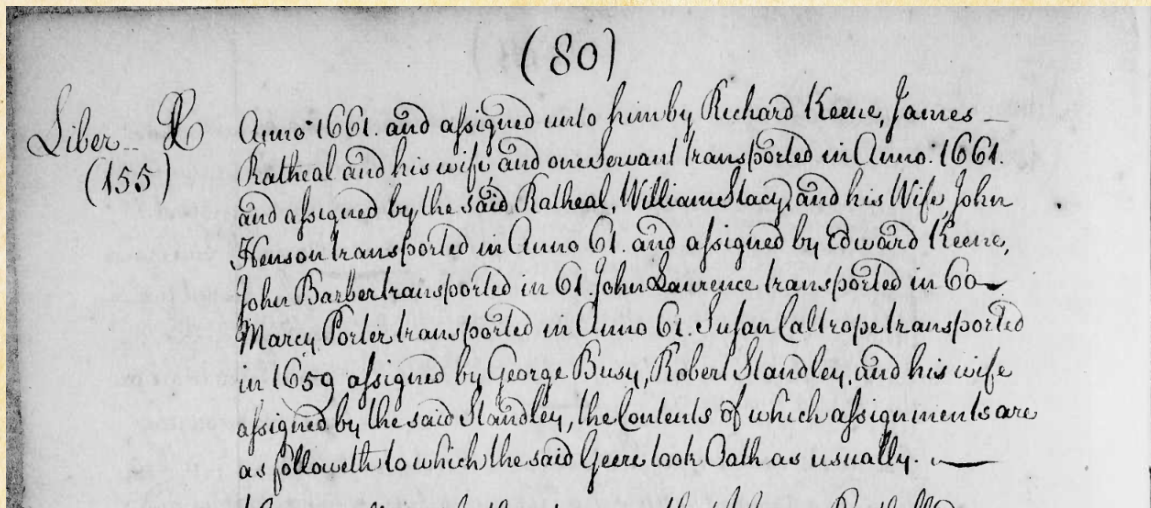 (80)
Liber R
(155)
Anno 1661. and assigned unto him by Richard Keene, James
Ratheal and his wife, and one servant transported in Anno. 1661.
and assigned by the said Ratheal, William Stacy, and his Wife, John
Henson transported in Anno 61. and assigned by Edward Keene,
John Barber transported in 61. John Laurence transported in 60
Marcy Porter transported in Anno 61. Susan Caltrope transported
in 1659 assigned by George Busy, Robert Standley, and his wife
assigned by the said Standley, the Contents of which assignments are
as followeth to which the said Geere took Oath as usually.